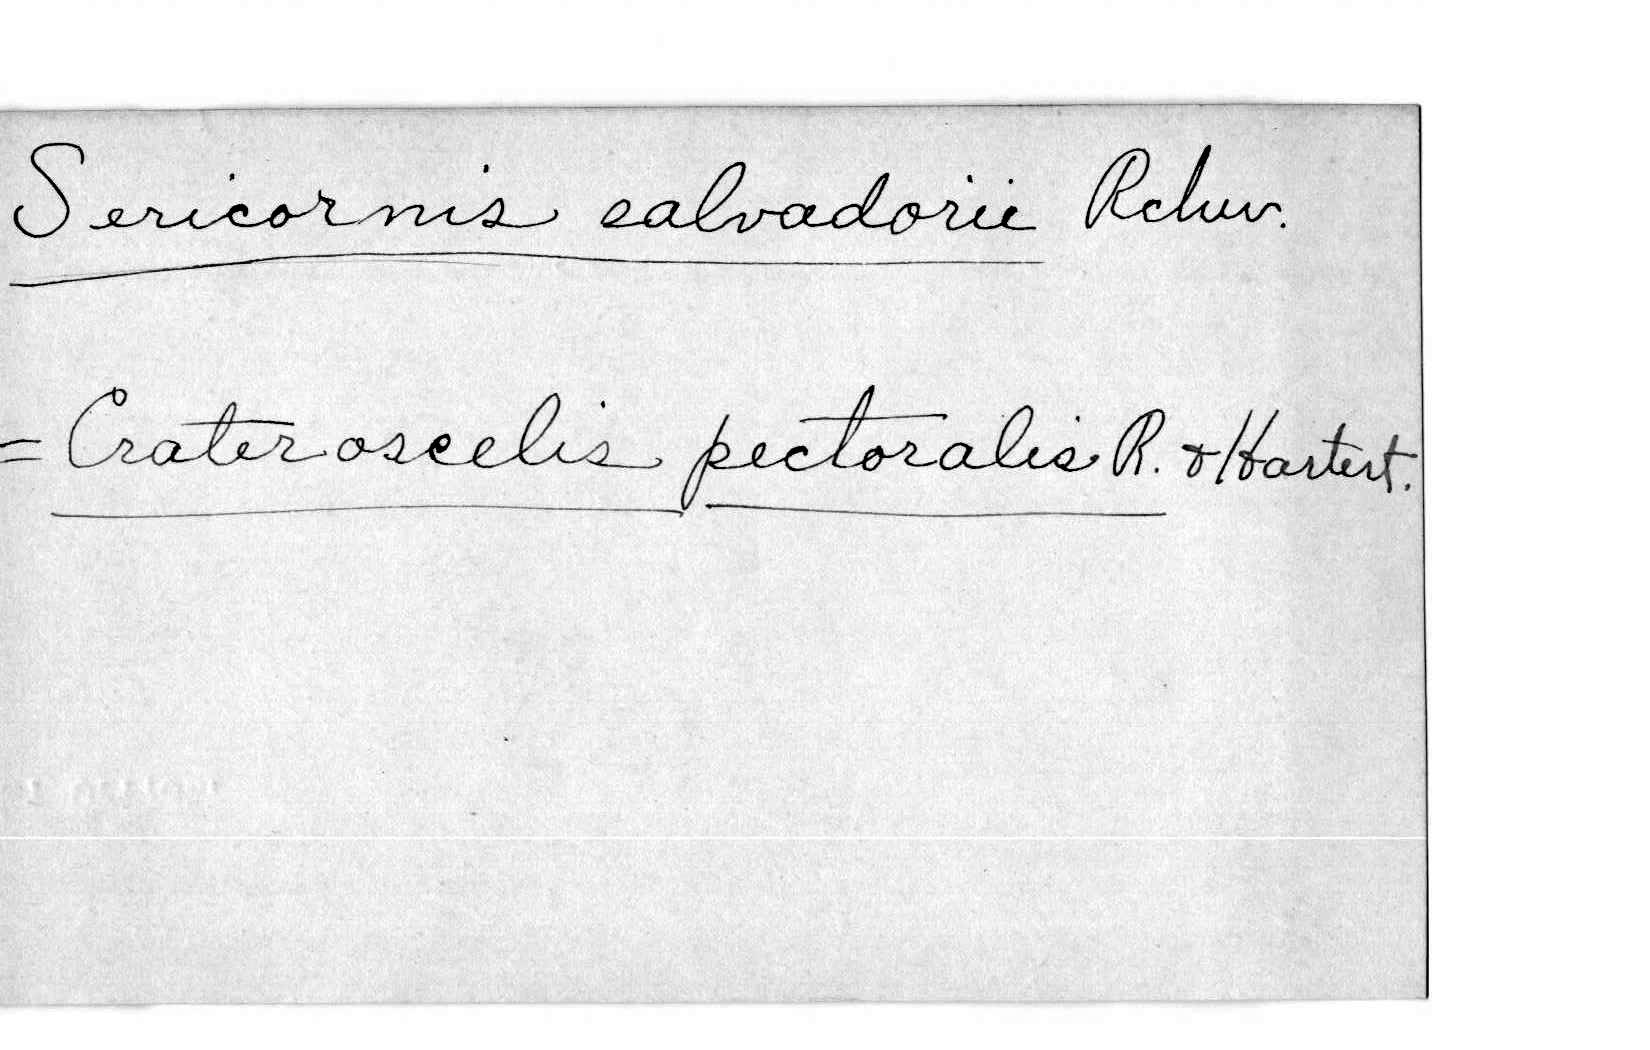 Sericornis salvadorii Rchw.
= Crateroscelis pectoralis R. & Hartert.